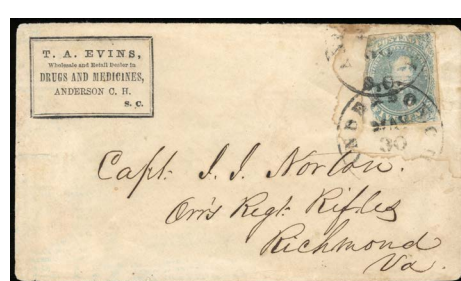 T. A. EVINS,
Wholesale and Retail Dealer in
DRUGS AND MEDICINES,
ANDERSON C. H.
S. C.
S.C.
30
Capt. J. J. Norton.
Orr's Regt. Rifles
Richmond
Va.